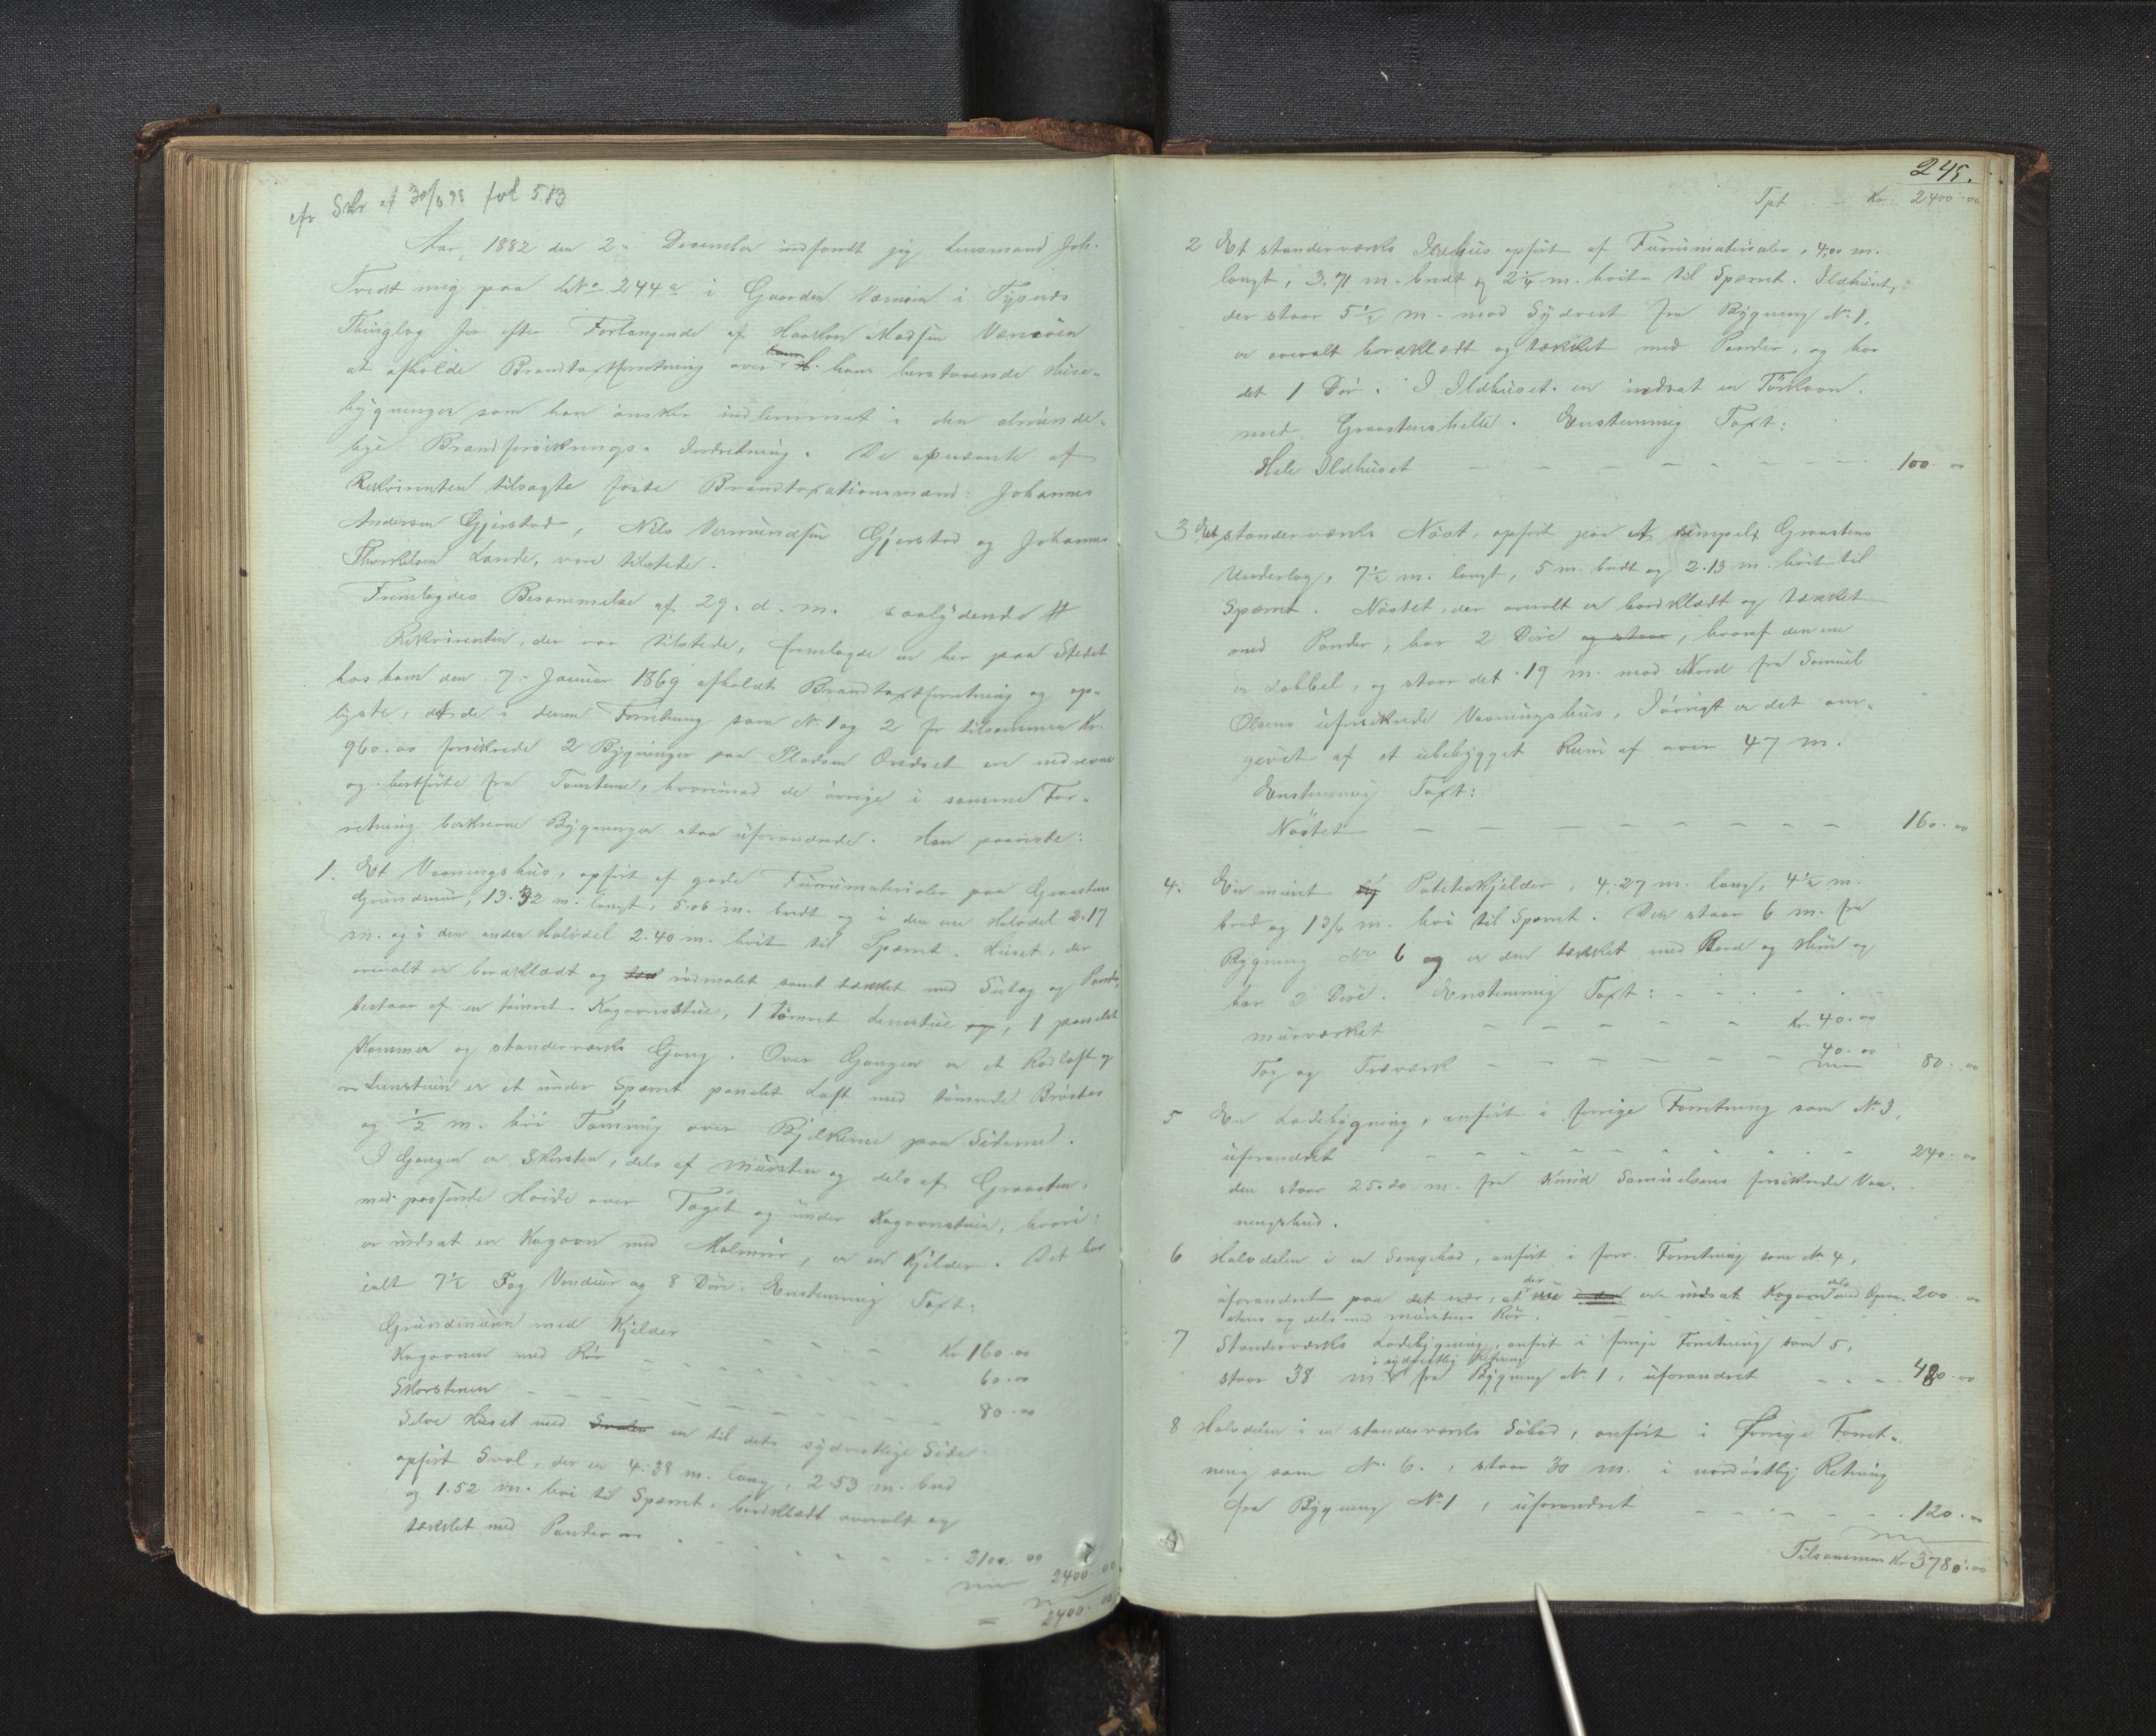 cfr Skr af 30/6 98 fol 513
Aar 1882 den 2. December indfandt jeg Lensmand Joh.
Tvedt mig paa LNo 244a i Gaarden Værnøen i Tysnæs
Thinglag for efter Forlangende af Haakon Madsen Værnøen
at afholde Brandtaxtforretning over hans herstaaende Huse-
bygninger som han ønsker indlemmet i den alminde-
lige Brandforsikrings-Indretning. De af
Rekvirenten tilsagte faste Brandtaxationsmænd: Johannes
Andersen Gjerstad, Nils Vermundsen Gjerstad og Johannes
Thorkelsen Lande, var tilstede.
Fremlagdes Berammelse af 29. d. m. saalydende #
Rekvirenten, der var tilstede, fremlagde en her paa Stedet
hos ham den 7. Januar 1869 afholdt Brandtaxtforretning og op-
lyste, at de i denne Forretning som No 1 og 2 for tilsammen Kr.
960.00 forsikrede 2 Bygninger paa Pladsen ere nedrevne
og bortførte fra Tomterne, hvorimod de øvrige i samme For-
retning beskrevne Bygninger staa uforandrede. Han paaviste:
1. Et Vaaningshus, opført af gode Furumaterialer paa Graastens
Grundmur, 13.32 m. langt, 5.06 m. bredt og i den ene Halvdel 2.17
m. og i den anden Halvdel 2.40 m. høit til Sparret. Huset, der
overalt er bordklædt og rødmalet samt tækket med Sutag og Pander,
bestaar af en tømret Kogovnsstue, 1 tømret Lemstue, 1 panelet
Kammer og standerværks Gang. Over Gangen er et Rødloft og
over Lemstuen er et under Sparret panelet Loft med tømrede Brøster
og ½ m. høi Tømring over Bjelkerne paa Siderne.
I Gangen er Skorsten, dels af Mursten og dels af Graasten,
med passende Høide over Taget og under Kogovnstuen, hvori
er indsat en Kogovn med Halvmur, er en Kjelder. Det har
ialt 7½ Fag Vinduer og 8 Døre. Enstemmig Taxt:
Grundmuren med Kjelder - - - Kr. 160.00
Kogovnen med Rør - - - 60.00
Skorstenen - - - 80.00
Selve Huset med en til dets sydvestlige Side
opført Sval, der er 4.38 m. lang, 2.53 m. bred
og 1.52 m. høi til Sparret, bordklædt overalt og
tækket med Pander - - - 2100.00
2400.00
2400.00
245.
Tpt - Kr. 2400.00
2 Et standerværks Ildhus opført af Furumaterialer, 4.00 m.
langt, 3.71 m. bredt og 2¼ m. høit til Sparret. Ildhuset,
der staar 5½ m. mod Sydvest fra Bygning No 1,
er overalt bordklædt og tækket med Pander, og har
det 1 Dør. I Ildhuset er indsat en Tørkovn
med Graastenshelle. Enstemmig Taxt:
Hele Ildhuset - - - 100.00
3 Et standerværks Nøst, opført paa et simpelt Graastens
Underlag, 7½ m. langt, 5 m. bredt og 2.13 m. høit til
Sparret. Nøstet, der overalt er bordklædt og tækket
med Pander, har 2 Døre og staar, hvoraf den ene
er dobbel, og staar det 19 m. mod Nord fra Samuel
Olsens uforsikrede Vaaningshus, Iøvrigt er det om-
givet af et ubebygget Rum af over 47 m.
Enstemmig Taxt:
Nøstet - - - 160.00
4. En muret Potetekjelder, 4.27 m. lang, 4½ m.
bred og 1¾ m. høi til Sparret. Den staar 6 m. fra
Bygning No 6 og er den tækket med Bord og Hun og
har 2 Døre. Enstemmig Taxt:
Murværket - - - Kr. 40.00
Tag og Træværk - - - 40.00 80.00
5 En Ladebygning, anført i forrige Forretning som No 3,
uforandret - - - 240.00
den staar 25.20 m. fra Knud Samuelsens forsikrede Vaa-
ningshus.
6 Halvdelen i en Sengebod, anført i forr. Forretning som No 4,
uforandret paa det nær, at der er indsat Kogovn dels med 200.00
stens og dels med murstens Rør.
7 Standerværks Ladebygning, anført i forrige Forretning som 5,
staar 38 m. i sydvestlig Retning fra Bygning No 1, uforandret - - - 480.00
8 Halvdelen i en standerværks Søbod, anført i forrige Forret-
ning som No 6., staar 30 m. i nordøstlig Retning
fra Bygning No 1, uforandret - - - 120.00
Tilsammen Kr 3780.00